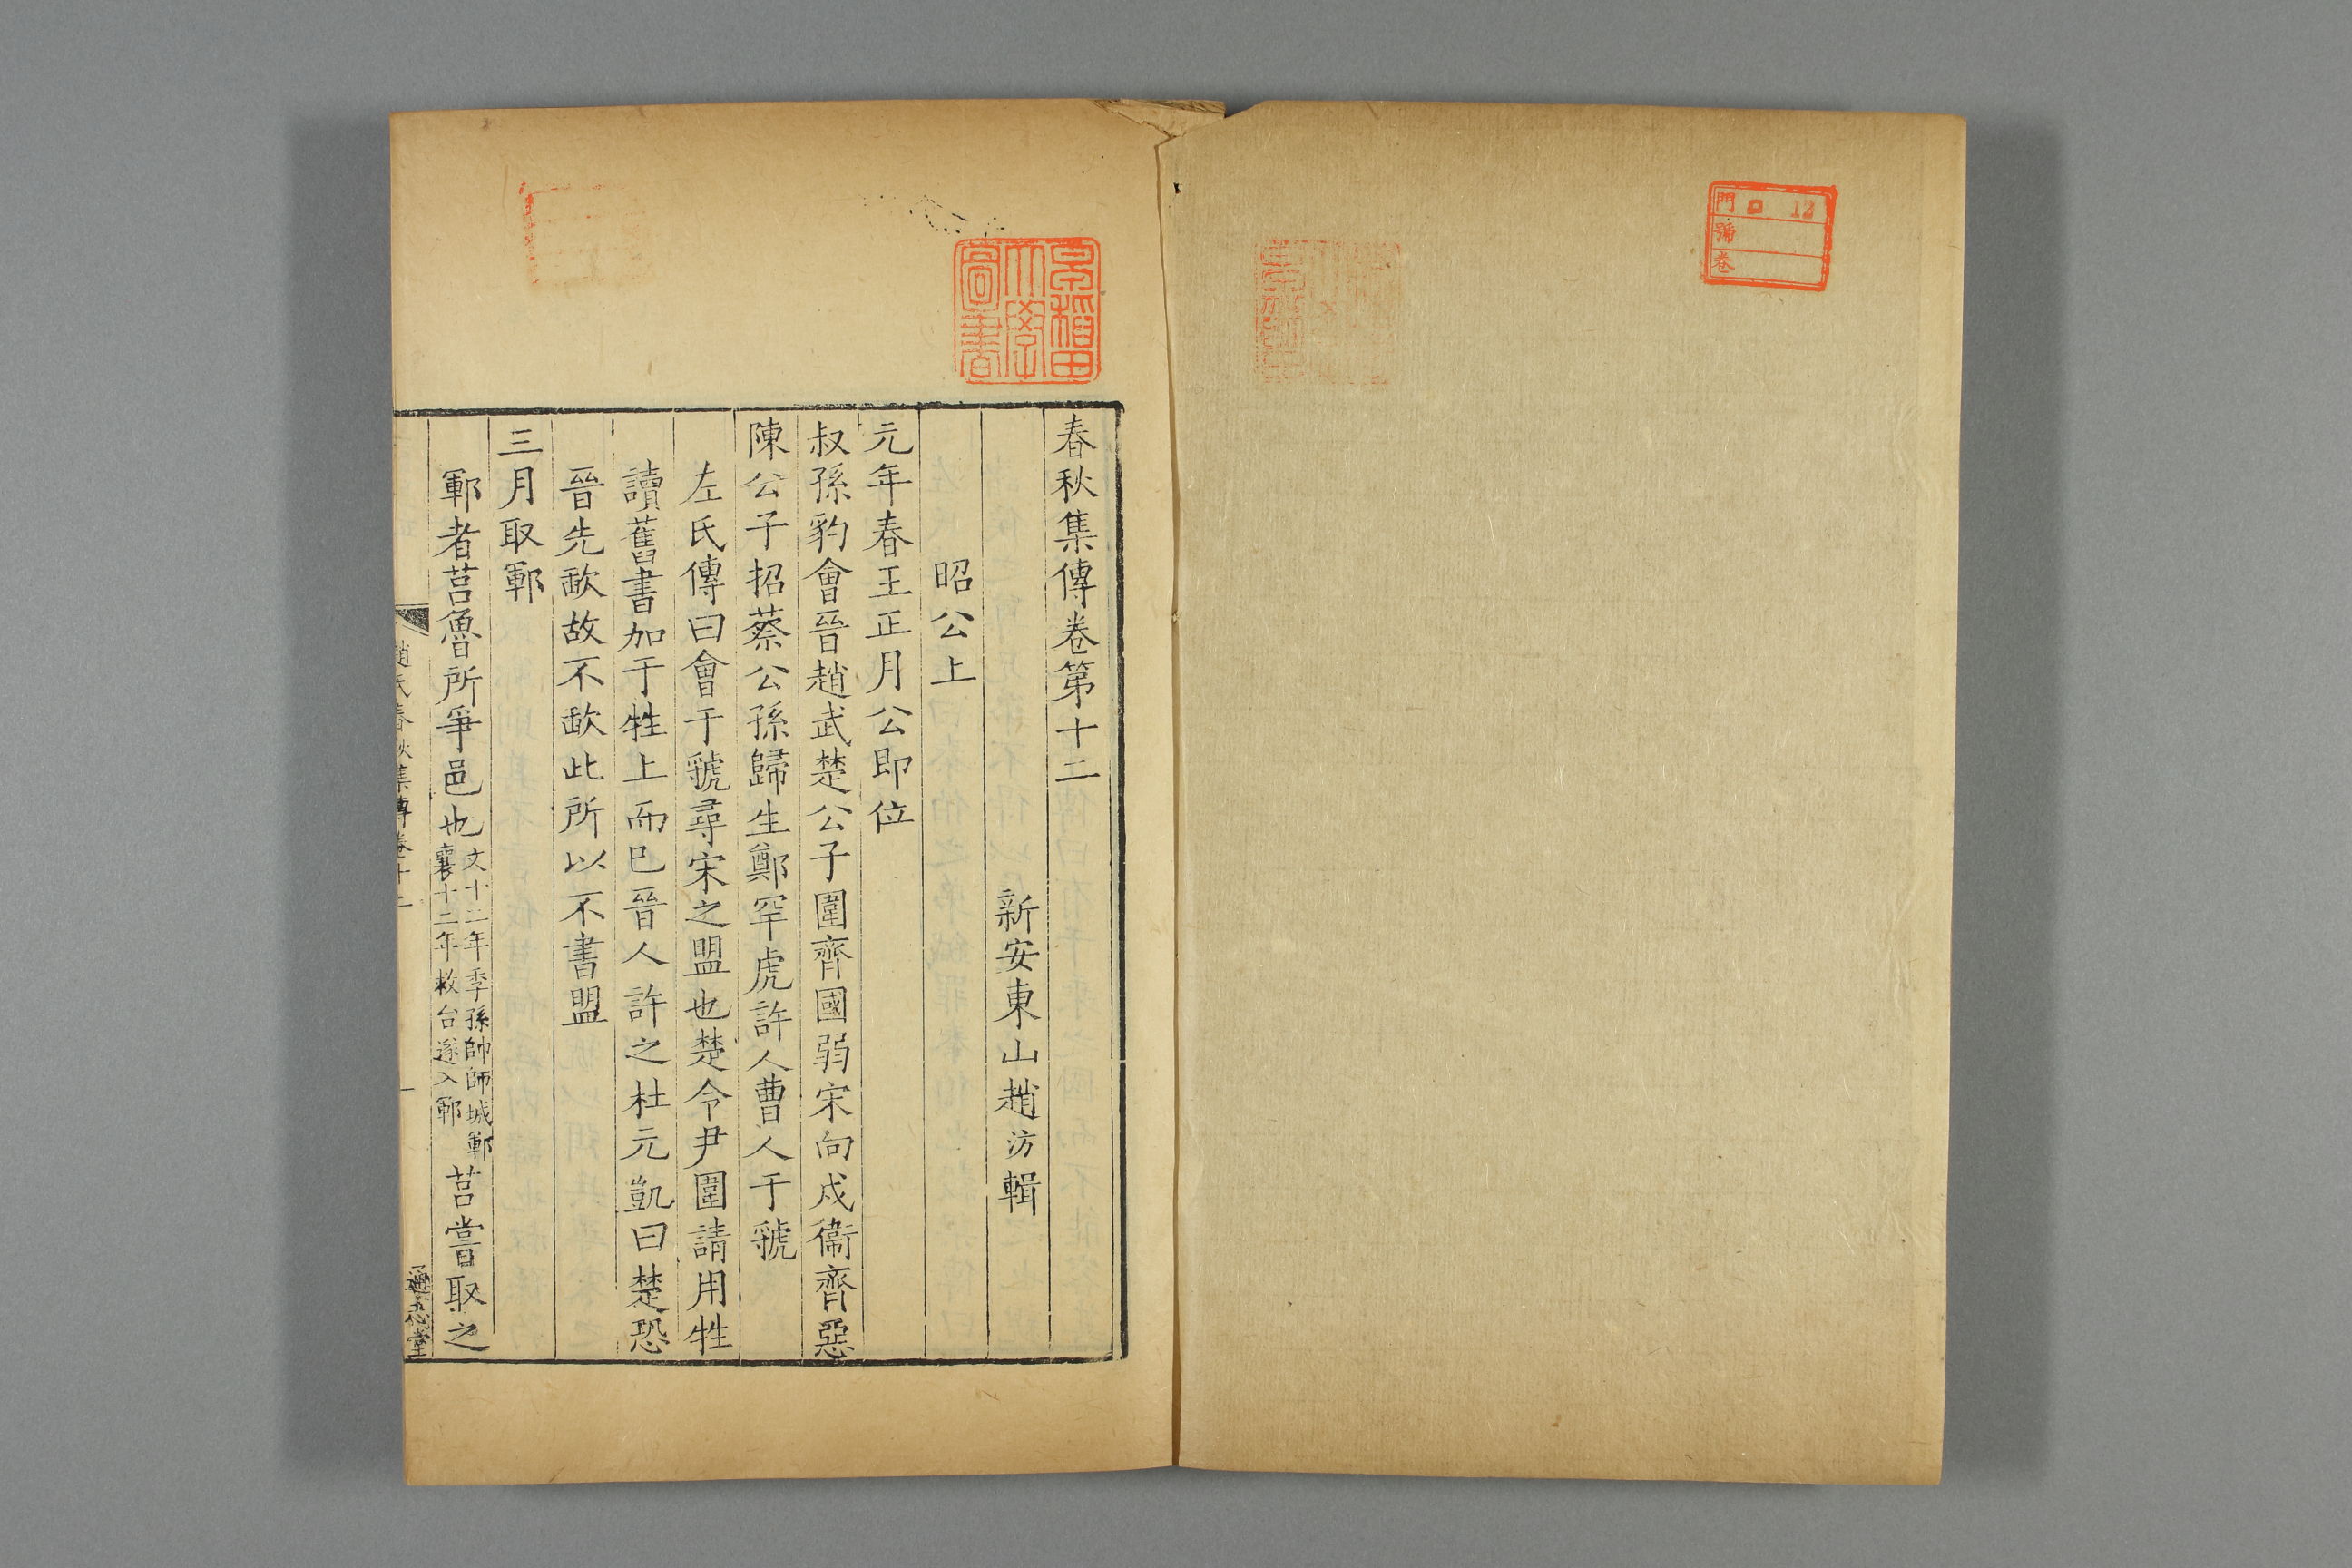 門 口 12
號
卷
早稲田
大學
圖書
春秋集傳卷第十二
新安東山趙汸輯
昭公上
元年春王正月公即位
叔孫豹會晉趙武楚公子圍齊國弱宋向戌衞齊惡
陳公子招蔡公孫歸生鄭罕虎許人曹人于虢
左氏傳曰會于虢尋宋之盟也楚令尹圍請用牲
讀舊書加于牲上而巳晉人許之杜元凱曰楚恐
晉先歃故不歃此所以不書盟
三月取鄆
鄆者莒魯所爭邑也文十二年季孫帥師城鄆襄十二年救台遂入鄆莒嘗取之
趙氏春秋集傳卷十二 一 通志堂